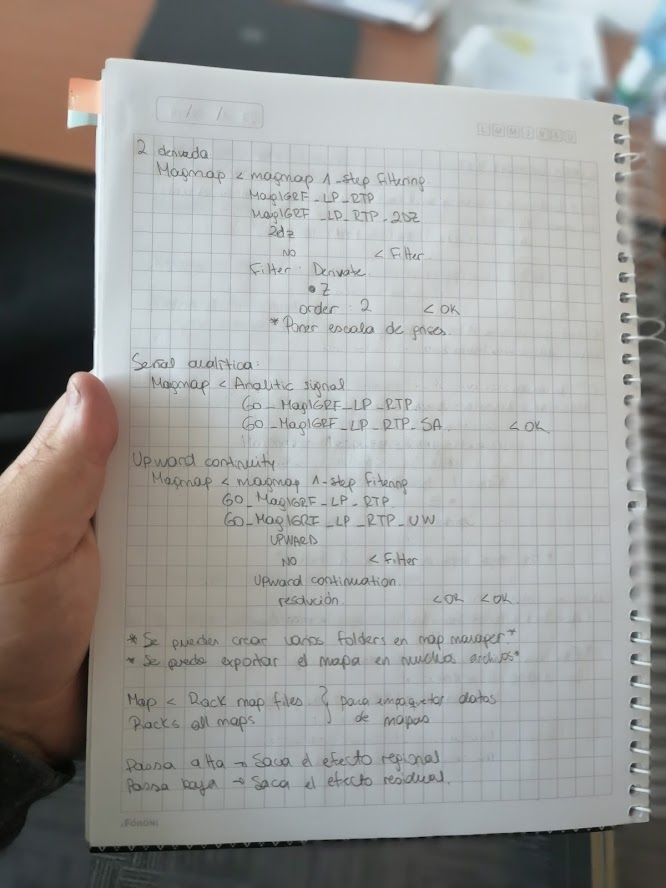 / /
LUMINEU
2 derivada
Magmap < magmap 1-step filtering
MagIGRF_LP_RTP
MagIGRF_LP_RTP_2DZ
2dz
NO < Filter
Filter: Derivate
• Z
order: 2 < OK
* Poner escala de grises.
Señal analítica:
Magmap < Analitic signal
GO_MagIGRF_LP_RTP
GO_MagIGRF_LP_RTP_SA < OK
Upward continuity
Magmap < magmap 1-step Fitering
GO_MagIGRF_LP_RTP
GO_MagIGRF_LP_RTP_UW
UPWARD
NO < Filter
Upward continuation
resolución < OK < OK
* Se pueden crear varios folders en map manager *
* Se puede exportar el mapa en muchos archivos *
Map < Pack map files } para empaquetar datos
Packs all maps } de mapas
Passa alta → Saca el efecto regional
Passa baja → Saca el efecto residual.